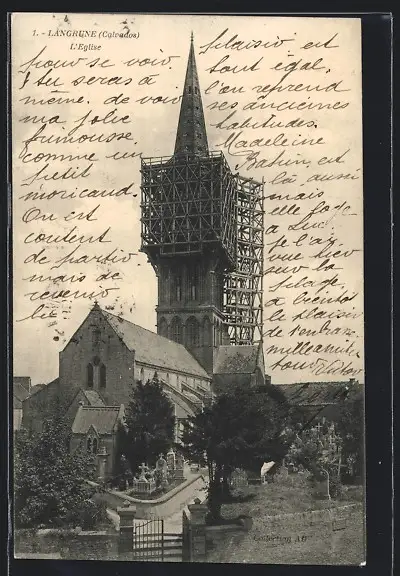 7. - LANGRUNE (Calvados)
L'Eglise
pour se voir
tu seras à
même. de voir
ma jolie
frimousse.
comme un
petit
moricaud.
On est
content
de partir
mais de
revenir
plaisir est
tout égal,
l'on reprend
ses anciennes
habitudes.
Madeleine
est
là aussi
mais
elle
je
l'ai
vue hier
sur la
plage.
à bientôt
le plaisir
de
Collection